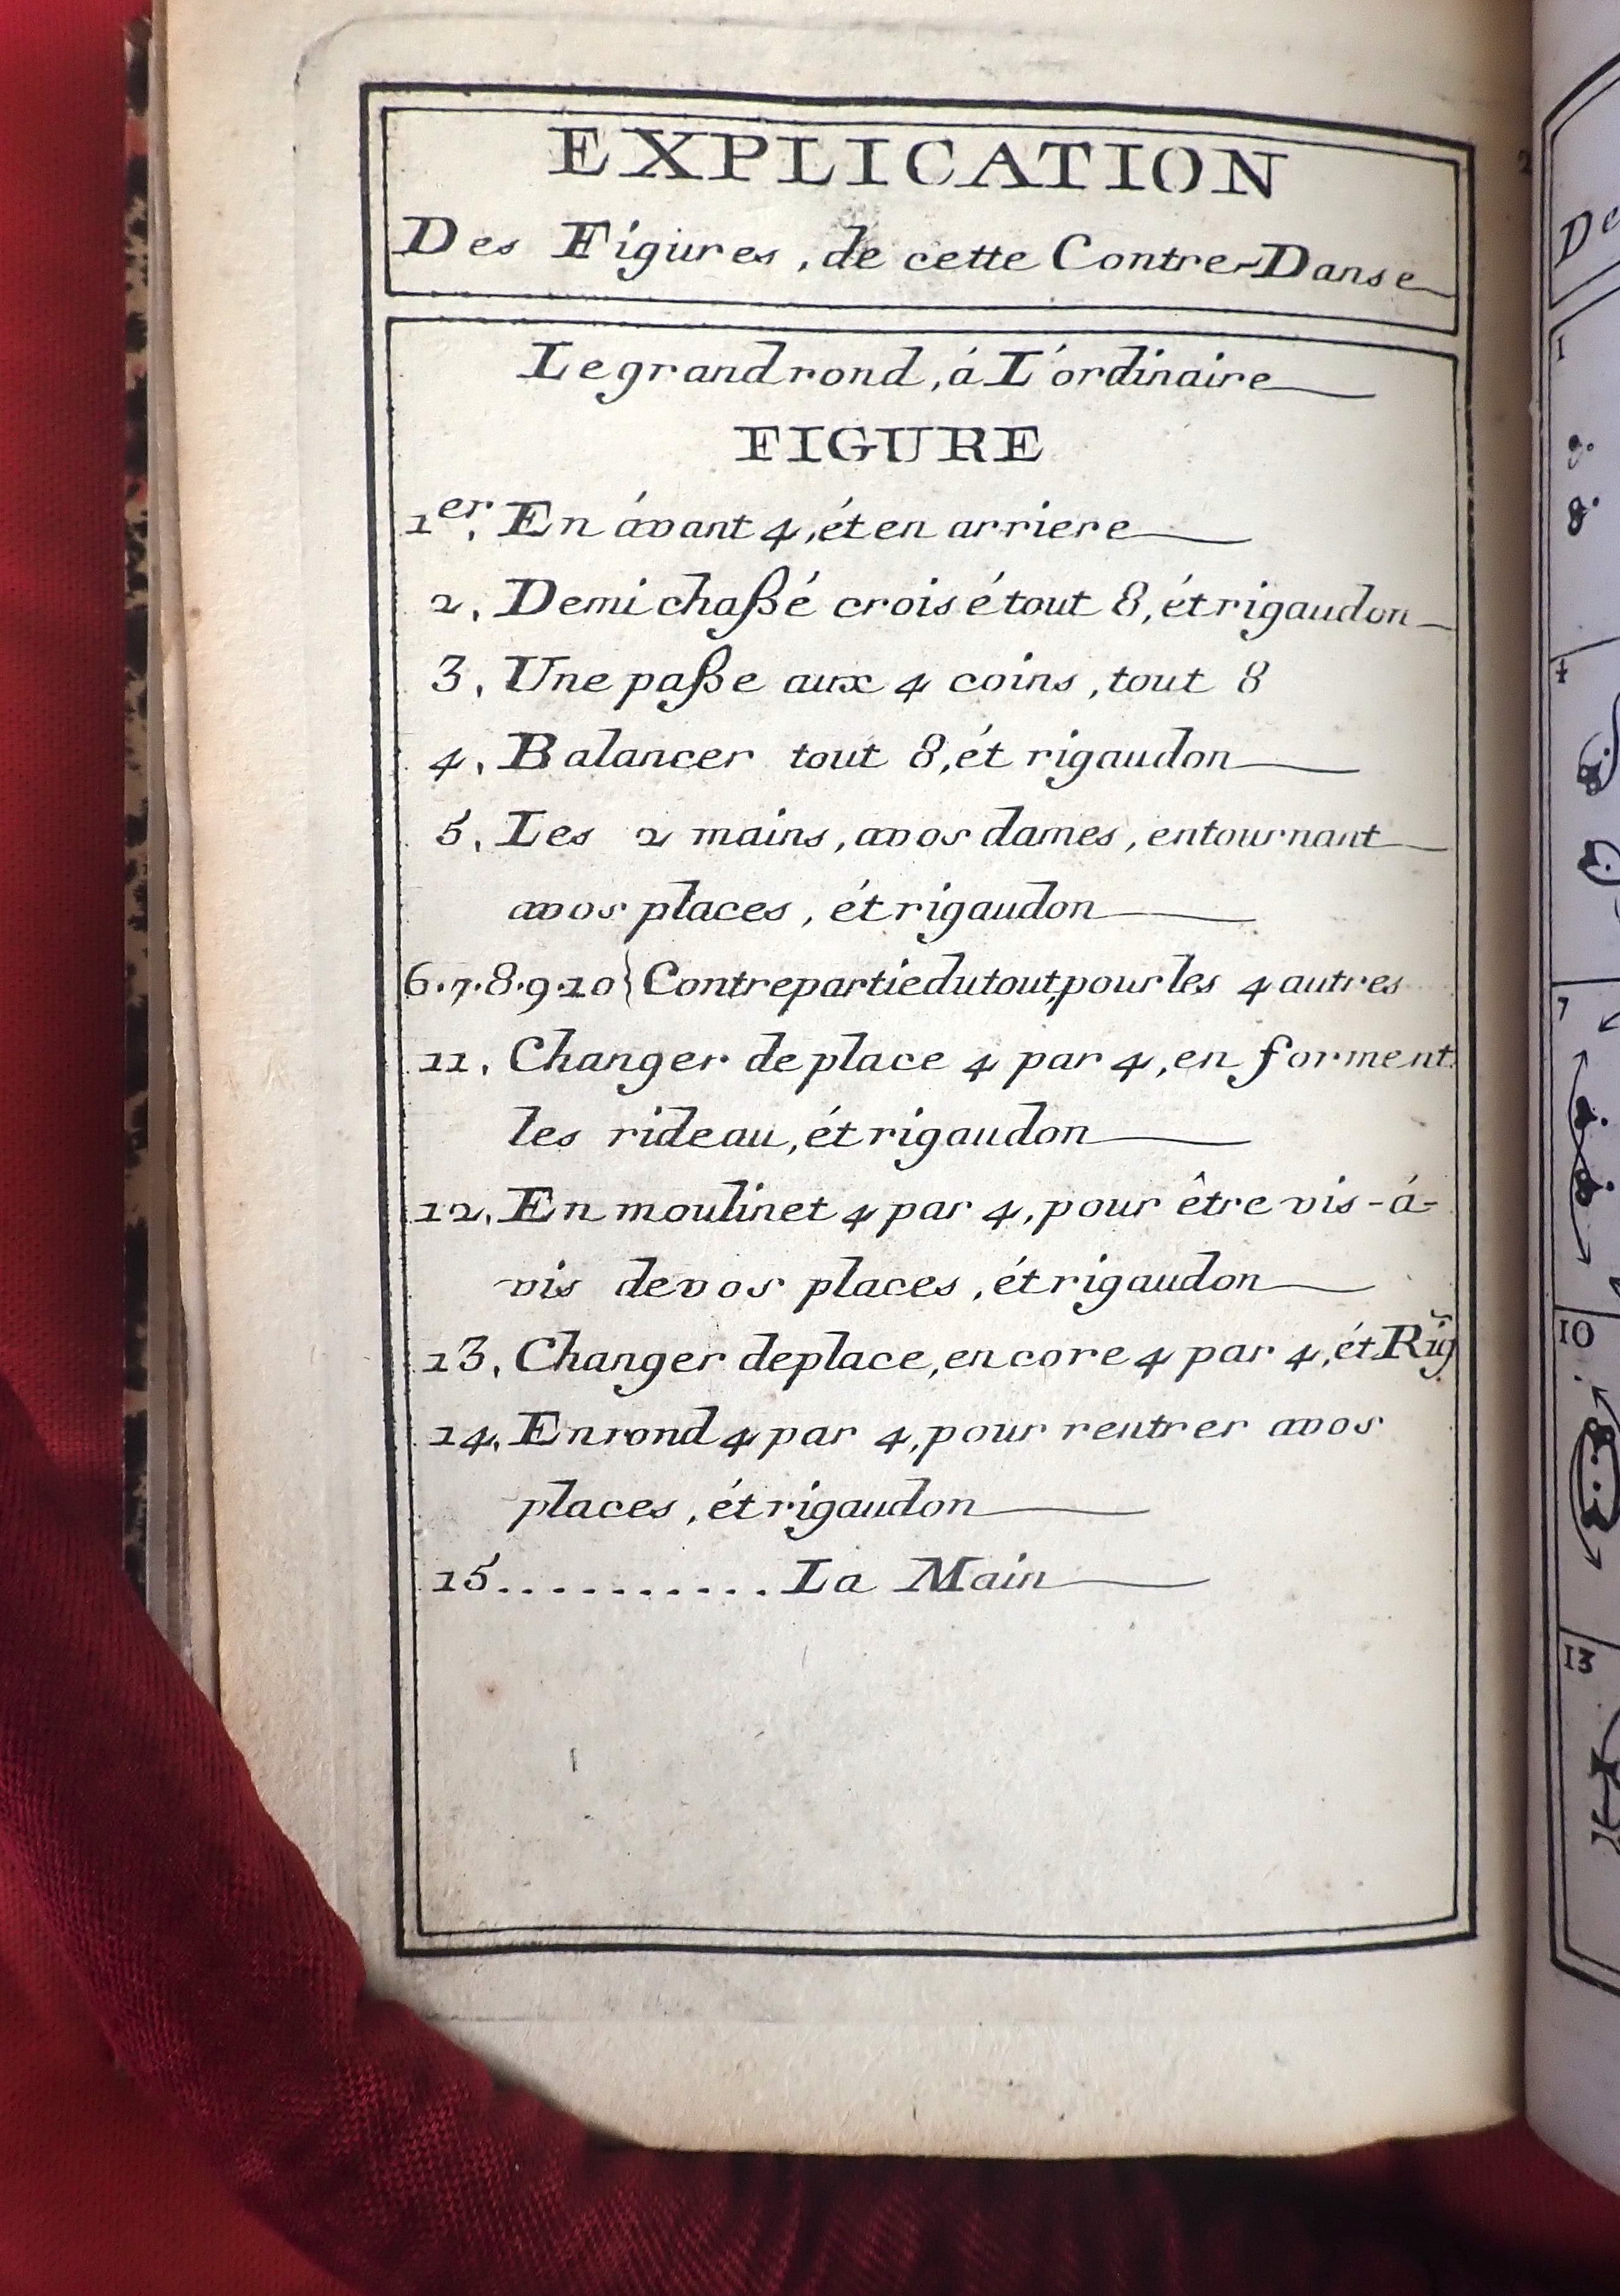 EXPLICATION
Des Figures, de cette Contre-Danse
Le grand rond, á L'ordinaire
FIGURE
1er. En ávant 4, ét en arriere
2. Demi chaßé croisé tout 8, ét rigaudon
3. Une paße aux 4 coins, tout 8
4. Balancer tout 8, ét rigaudon
5. Les 2 mains, a vos dames, en tournant
a vos places, ét rigaudon
6.7.8.9.10} Contre partie du tout, pour les 4 autres
11. Changer de place 4 par 4, en forment
les rideau, ét rigaudon
12. En moulinet 4 par 4, pour être vis-á-
vis de vos places, ét rigaudon
13. Changer de place, encore 4 par 4, ét Rig
14. En rond 4 par 4, pour rentrer a vos
places, ét rigaudon
15........... La Main
De
1
4
7
10
13